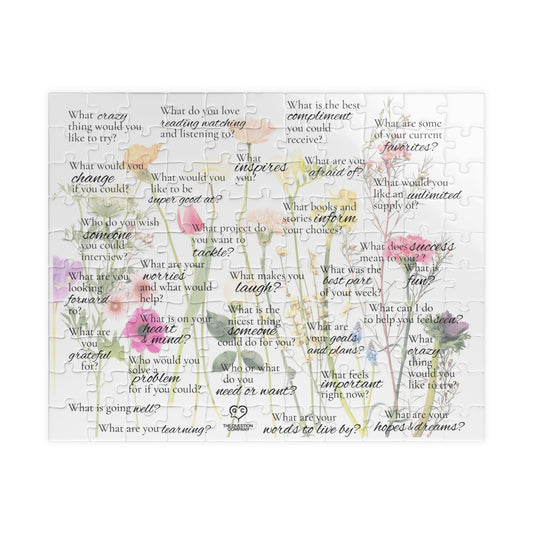 What crazy
thing would you
like to try?
What do you love
reading watching
and listening to?
What is the best
compliment
you could
receive?
What are some
of your current
favorites?
What would you
change
if you could?
What would you
like to be
super good at?
What
inspires
you?
What are you
afraid of?
What would you
like an unlimited
supply of?
Who do you wish
someone
you could
interview?
What project do
you want to
tackle?
What books and
stories inform
your choices?
What does success
mean to you?
What are you
looking
forward
to?
What are you
worries
and what would
help?
What makes you
laugh?
What was the
best part
of your week?
What is
fun?
What are
you
grateful
for?
What is on your
heart
& mind?
What is the
nicest thing
someone
could do for you?
What are
your goals
and plans?
What can I do
to help you feel seen?
What
crazy
thing
would you
like to try?
Who would you
solve a
problem
for if you could?
Who or what
do you
need or want?
What feels
important
right now?
What is going well?
What are you learning?
THE QUESTION
COMPANY
What are your
words to live by?
What are your
hopes & dreams?